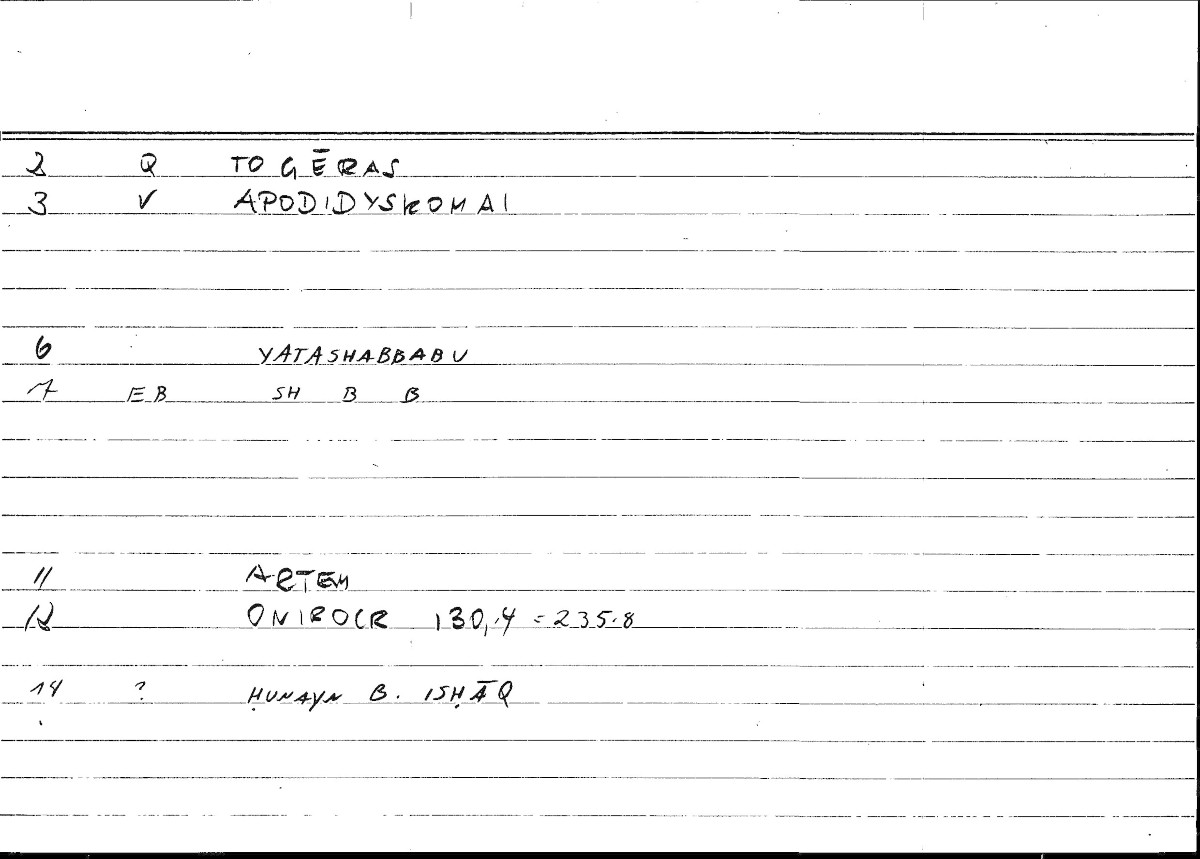 2 Q TO GĒRAS
3 V APODIDYSKOMAI
6 YATASHABBABU
7 EB SH B B
11 ARTEM
12 ONIROCR 130,.4 = 235.8
14 ? ḤUNAYN B. ISḤĀQ